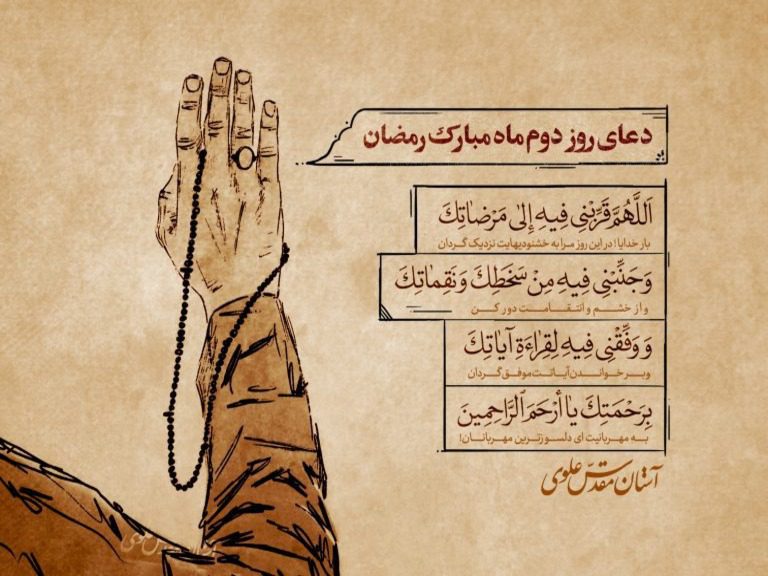 دعای روز دوم ماه مبارک رمضان
اَللَّهُمَّ قَرِّبْنِي فِيهِ إِلىٰ مَرْضاتِكَ
بار خدایا! در این روز مرا به خشنودیهایت نزدیک گردان
وَ جَنِّبْنِي فِيهِ مِنْ سَخَطِكَ وَ نَقِماتِكَ
و از خشم و انتقامت دور کن
وَ وَفِّقْنِي فِيهِ لِقِراءَةِ آياتِكَ
و بر خواندن آیاتت موفق گردان
بِرَحْمَتِكَ يا أَرْحَمَ الرَّاحِمِينَ
به مهربانیت ای دلسوزترین مهربانان!
آستان مقدّس علوی